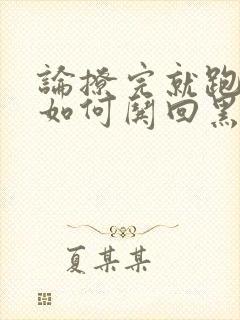 論撩完就跑
如何鬨回黑
夏某某